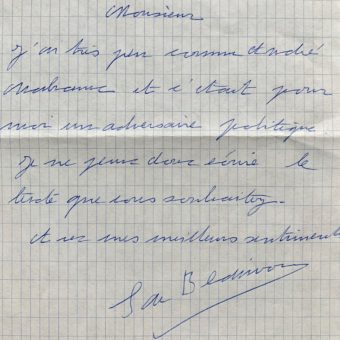 Monsieur
J'ai très peu connu André
Malraux et c'était pour
moi un adversaire politique
Je ne peux donc écrire le
texte que vous souhaitez.
et mes meilleurs sentiments
S de Beauvoir